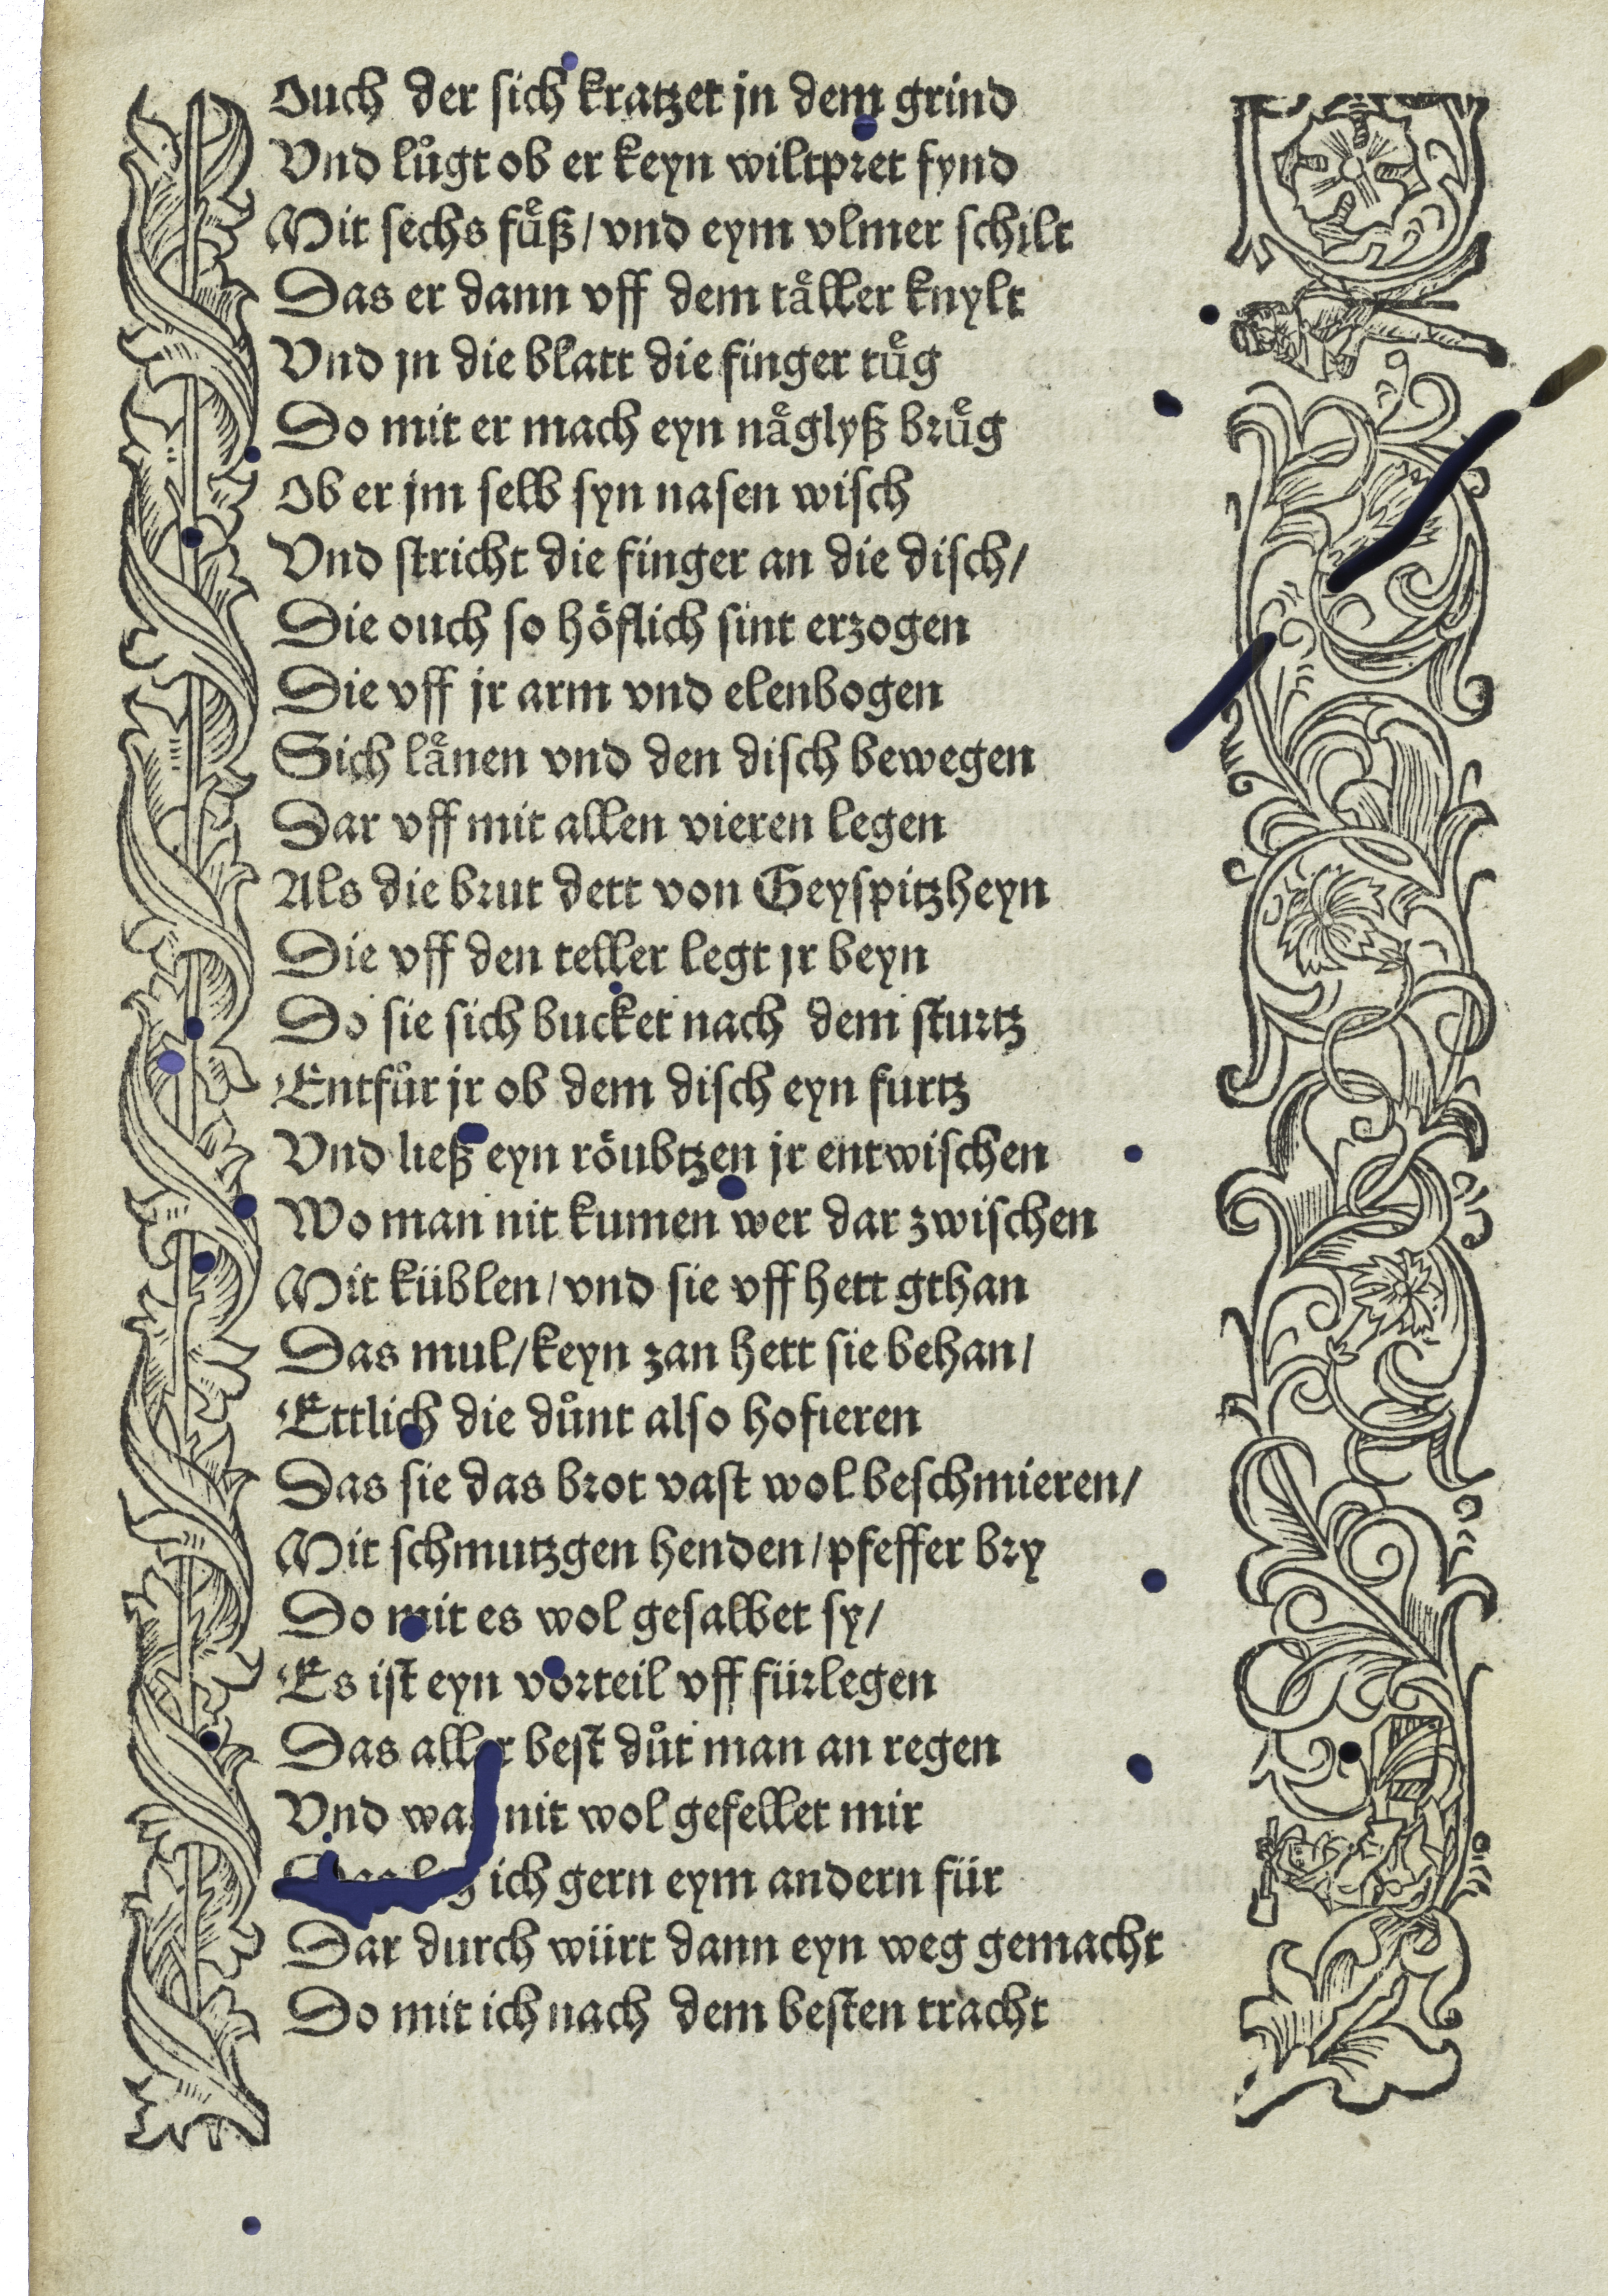 Ouch der sich kratzet jn dem grind
Vnd lůgt ob er keyn wiltpret fynd
Mit sechs fuͤß / vnd eym vlmer schilt
Das er dann vff dem taͤller knylt
Vnd jn die blatt die finger tuͤg
Do mit er mach eyn naͤglyß bruͤg
Ob er jm selb syn nasen wisch
Vnd stricht die finger an die disch /
Die ouch so hoͤflich sint erzogen
Die vff jr arm vnd elenbogen
Sich laͤnen vnd den disch bewegen
Dar vff mit allen vieren legen
Als die brut dett von Geyspitzheyn
Die vff den teller legt jr beyn
Do sie sich bucket nach dem sturtz
Entfůr jr ob dem disch eyn furtz
Vnd ließ eyn roͤubtzen jr entwischen
Wo man nit kumen wer dar zwischen
Mit küblen / vnd sie vff hett gthan
Das mul / keyn zan hett sie behan /
Ettlich die důnt also hofieren
Das sie das brot vast wol beschmieren /
Mit schmutzgen henden / pfeffer bry
Do mit es wol gesalbet sy /
Es ist eyn vorteil vff fürlegen
Das aller best důt man an regen
Vnd nit wol gefellet mir
ich gern eym andern für
Dar durch würt dann eyn weg gemacht
Do mit ich nach dem besten tracht